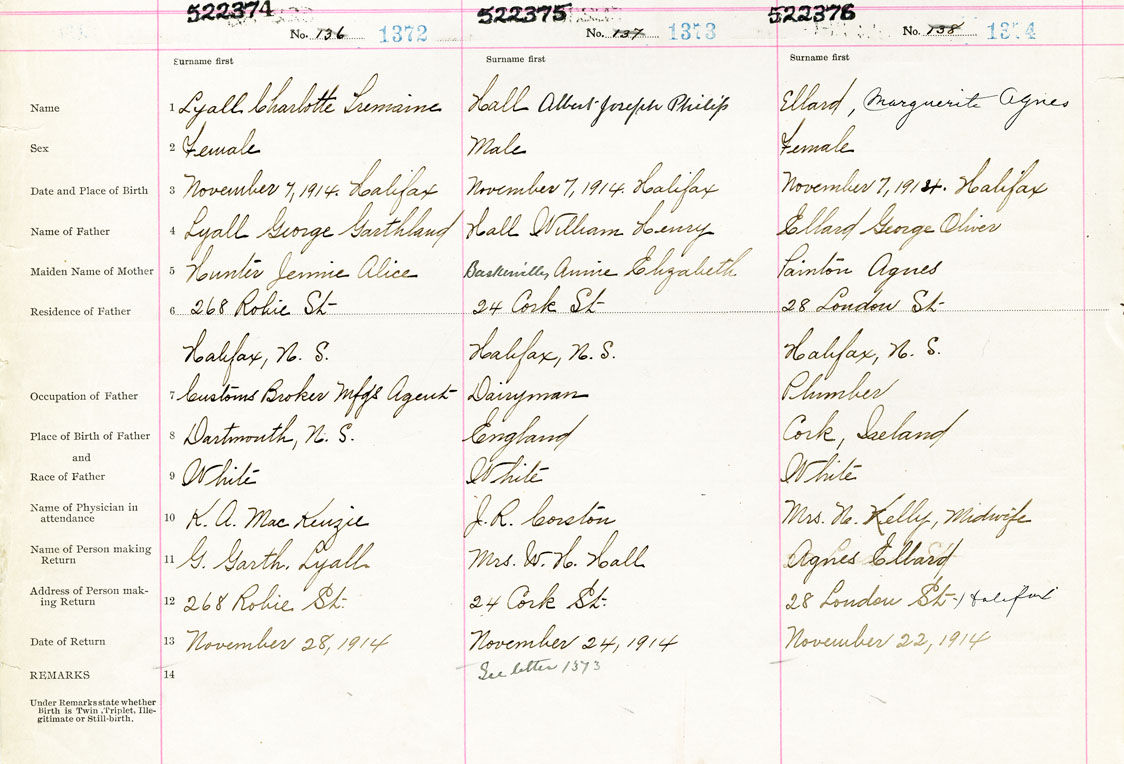 522374 522375 522376
No. 136 1372 No. 137 1373 No. 138 1374
Surname first Surname first Surname first
Name 1 Lyall Charlotte Tremaine Hall Albert Joseph Philip Ellard, Marguerite Agnes
Sex 2 Female Male Female
Date and Place of Birth 3 November 7, 1914. Halifax November 7, 1914. Halifax November 7, 1914. Halifax
Name of Father 4 Lyall George Garthland Hall William Henry Ellard George Oliver
Maiden Name of Mother 5 Hunter Jennie Alice Baskerville Annie Elizabeth Painton Agnes
Residence of Father 6 268 Robie St 24 Cork St 28 London St
Halifax, N. S. Halifax, N. S. Halifax, N. S.
Occupation of Father 7 Customs Broker Mfgs Agent Dairyman Plumber
Place of Birth of Father 8 Dartmouth, N. S. England Cork, Ireland
and
Race of Father 9 White White White
Name of Physician in
attendance 10 K. A. MacKenzie J. R. Corston Mrs. N. Kelly, Midwife
Name of Person making
Return 11 G. Garth. Lyall Mrs. W. H. Hall Agnes Ellard
Address of Person mak-
ing Return 12 268 Robie St. 24 Cork St. 28 London St., Halifax
Date of Return 13 November 28, 1914 November 24, 1914 November 22, 1914
REMARKS 14 See letter 1373
Under Remarks state whether
Birth is Twin, Triplet, Ille-
gitimate or Still-birth.